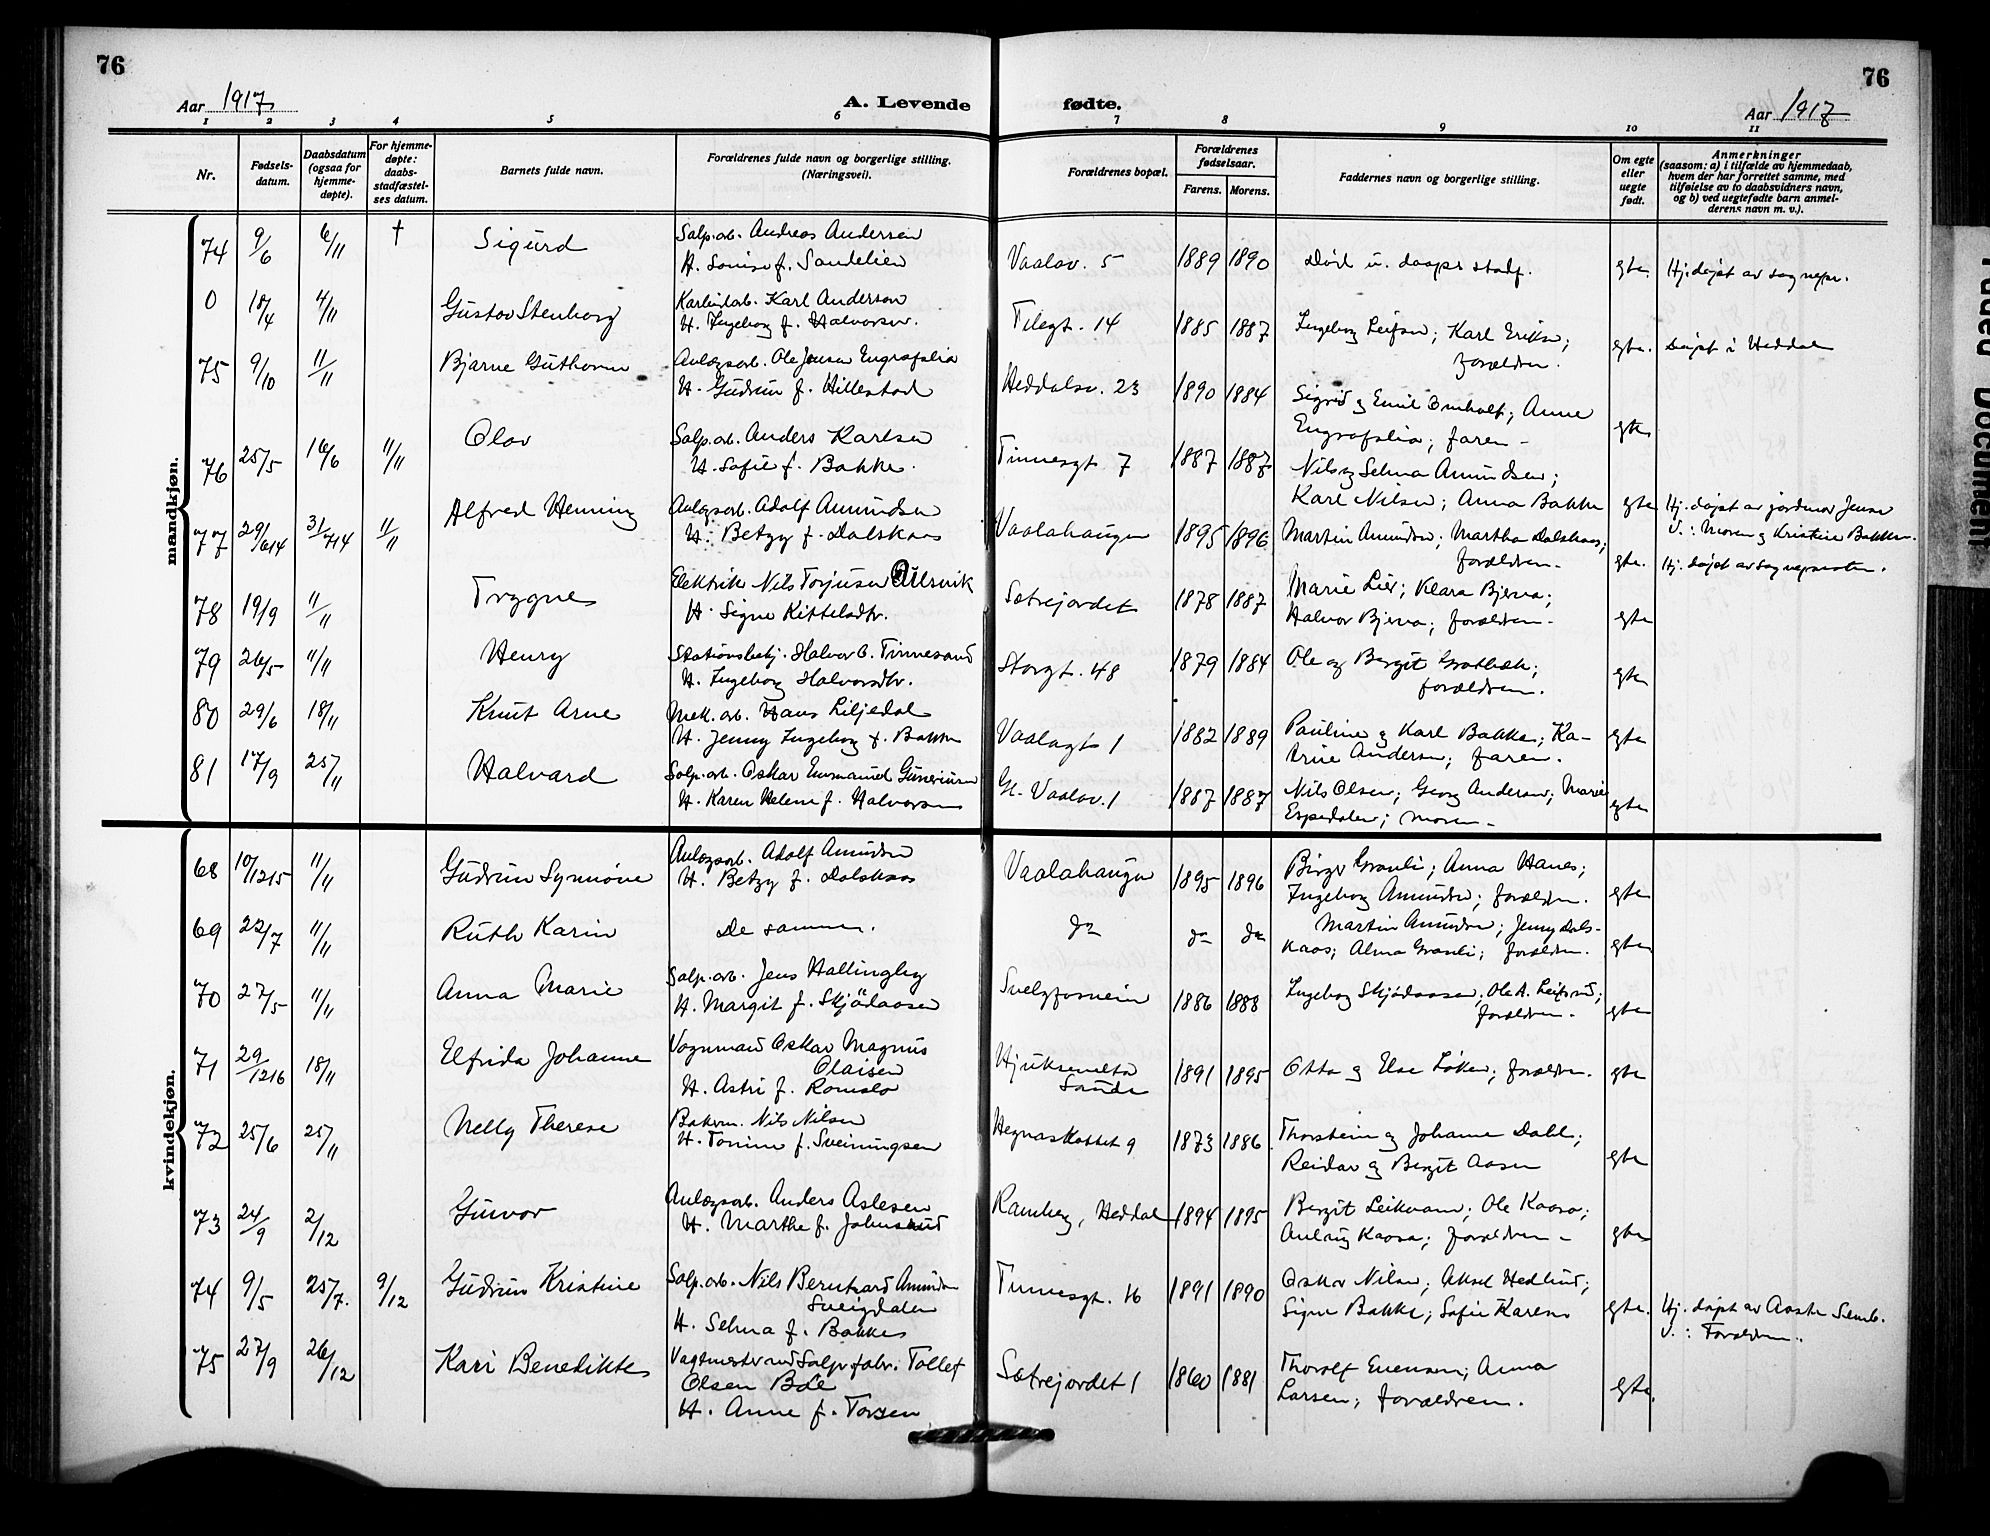 76
76
Aar 1917
A. Levende fødte.
Aar 1917
1 2 3 4 5 6 7 8 9 10 11
Nr.
Fødsels-datum.
Daabsdatum (ogsaa for hjemme-døpte).
For hjemme-døpte: daabs-stadfæstel-ses datum.
Barnets fulde navn.
Forældrenes fulde navn og borgerlige stilling. (Næringsvei).
Forældrenes bopæl.
Forældrenes fødselsaar.
Farens. Morens.
Faddernes navn og borgerlige stilling.
Om egte eller uegte født.
Anmerkninger
(saasom: a) i tilfælde av hjemmedaab, hvem der har forrettet samme, med tilføielse av to daabsvidners navn, og b) ved uegtefødte barn anmel-derens navn m. v.).
mandkjøn.
74 9/6 6/11 † Sigurd Salp.arb. Andreas Andersen Vaalav. 5 1889 1890 Død u. daaps stadf. egte. Hj.døpt av sognepr.
H. Louise f. Sandelien
0 18/4 4/11 Gustav Stenborg Karl Anderson Tilegt. 14 1885 1887 Ingeborg Leifsen; Karl Eriksen; egte. Døpt i Heddal
H. Ingeborg f. Halvorsen. forældren.
75 9/10 11/11 Bjarne Guthorm Anlægsarb. Ole Jensen Engrafslia Heddalsv. 23 1890 1884 Sigrid og Emil; Anne egte
H. Gudrun f. Hillestad Engrafslia; faren -
76 25/5 16/6 11/11 Olav Salp.arb. Anders Karlsen Tinnesgt. 7 1887 1887 Nils og Selma Amundsen;
H. Sofie f. Bakke. Karl Nilsen; Anna Bakke egte Hj. døpt av jordmor Jensen
V.: Moren og Kristine Bakken.
77 29/6 14 31/7 14 11/11 Alfred Henning Anlægsarb. Adolf Amundsen Vaalahaugen 1895 1896 Martin Amundsen; Martha Dalskaas; egte. Hj. døpt av sognepresten.
H. Betzy f. Dalskaas forældren.
78 19/9 11/11 Trygve Elektrik Nils Torjusen Ulsvik Sætrejordet 1878 1887 Marie Lier; Klara Bjerva;
H. Signe Kittelsdtr. Halvor Bjerva; forældren. egte
79 26/5 11/11 Henry Stationsbetj. Halvor O. Tinnesand Storgt. 48 1879 1884 Ole og Bergit Grotbæk; egte
H. Ingeborg Halvorsdtr. forældren.
80 29/6 18/11 Knut Arne Mek. arb. Hans Liljedal Vaalagt 1 1882 1889 Pauline og Karl Bakke; Ka- egte
H. Jenny Ingeborg f. Bakke trine Andersen; faren.
81 17/9 25/11 Halvard Salp.arb. Oskar Emmanuel Guneriusen Gl. Vaalav. 1 1887 1887 Nils Olsen; Georg Andersen; Marie egte
H. Karen Helene f. Halvorsen Espedalen; moren -
kvindekjøn.
68 10/12 15 11/11 Gudrun Synnøve Anlægsarb. Adolf Amundsen Vaalahaugen 1895 1896 Birger Granli; Anna Hanes; egte
H. Betzy f. Dalskaas Ingeborg Amundsen; forældren.
69 22/7 11/11 Ruth Karin De samme. do do do Martin Amundsen; Jenny Dals- egte
kaas; Alma Granli; forældren.
70 27/5 11/11 Anna Marie Salp.arb. Jens Hallingby Svelgfosveien 1886 1888 Ingeborg Skjødaasen; Ole A. Leifsrud; egte
H. Margit f. Skjödaasen forældren.
71 29/12 16 18/11 Elfrida Johanne Vognmand Oskar Magnus Hjuksemelta 1891 1895 Otto og Else Løken; forældren. egte
Olaisen
H. Astri f. Romslo Saude
72 25/6 25/11 Nelly Therese Bakerm. Nils Nilsen Hegnaskottet 9 1873 1886 Thorstein og Johanne Dahl; egte
H. Tomine f. Sveinungsen Reidar og Bergit Aasen
73 24/9 2/12 Gunvor Anlægsarb. Anders Aslesen Ramberg, Heddal 1894 1895 Bergit Leikvam; Ole Kaasa; egte
H. Marthe f. Johnsrud Aslaug Kaasa; forældren -
74 9/5 25/7. 9/12 Gudrun Kristine Salp.arb. Nils Bernhard Amundsen Tinnesgt. 16 1891 1890 Oskar Nilsen; Aksel Hedlund; egte. Hj. døpt av Aasta Semb.
Sveigdalen Signe Bakke; Sofie Karlsen V.: Forældren.
H. Selma f. Bakke
75 27/9 26/12 Kari Benedikte Vagtmester ved Salp.fabr. Tollef Sætrejordet 1 1860 1881 Thorolf Evensen; Anna egte.
Olsen Bøe Larsen; forældren.
H. Anne f. Torsen